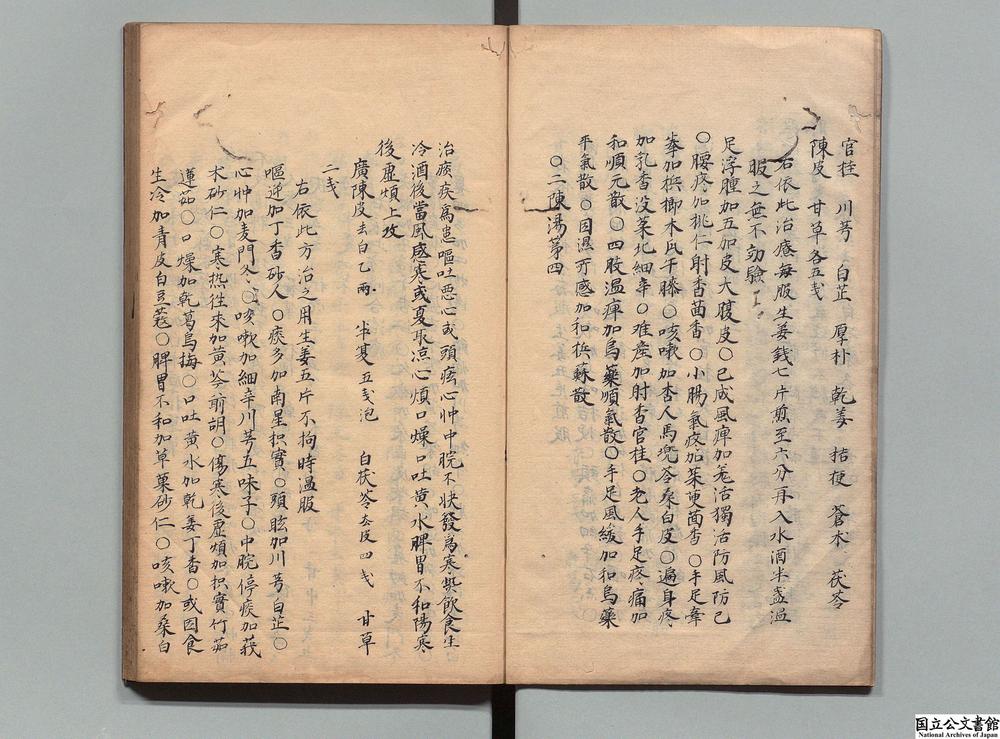 官桂 川芎 白芷 厚朴 乾姜 桔梗 蒼朮 茯苓
陳皮 甘草各五戋
右依此治療每服生姜錢七片煎至六分再入水酒半盞溫
服之無不効驗
足浮腫加五加皮大腹皮〇已成風痺加羌活獨活防風防已
〇腰疼加桃仁射香茴香〇小腸氣疼加茱萸茴香〇手足攣
拳加梹榔木瓜干膝〇咳嗽加杏人馬兜苓桑白皮〇遍身疼
加乳香没藥北細辛〇难產加肘香官桂〇老人手足疼痛加
和順元散〇四肢溫痺加烏藥順氣散〇手足風緩加和烏藥
平氣散〇因濕所感加和梹蘇散
〇二陳湯第四
治痰疾爲患嘔吐悪心或頭痃心忡中脘不快發爲寒熱飲食生
冷酒後當風感寒或夏取凉心煩口燥口吐黄水脾胃不和陽寒
後虛煩上攻
廣陳皮去白乙両 半夏五戋泡 白茯苓去皮四戋 甘草
二戋
右依此方治之用生姜五片不拘時溫服
嘔逆加丁香砂人〇痰多加南星枳實〇頭眩加川芎白芷〇
心忡加麦門冬〇咳嗽加細辛川芎五味子〇中脘停痰加莪
朮砂仁〇寒热徃來加黄芩前胡〇傷寒後虛煩加枳實竹茹
蓮茹〇口燥加乾葛烏梅〇口吐黄水加乾姜丁香〇或因食
生冷加青皮白豆蔻〇脾胃不和加草菓砂仁〇咳嗽加桑白
国立公文書館
National Archives of Japan